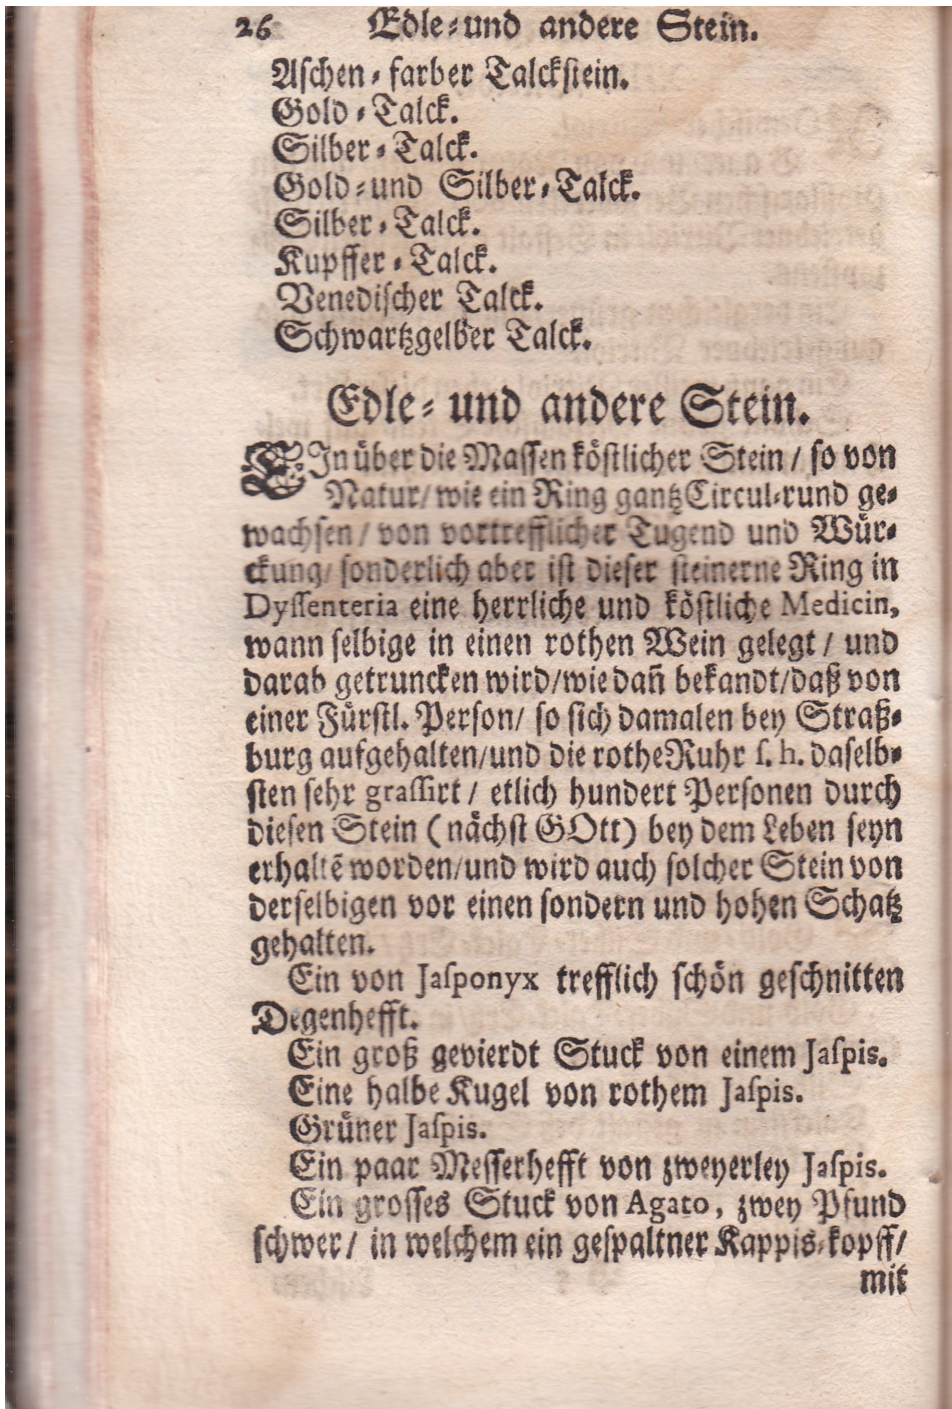 26 Edle-und andere Stein.
Aschen-farber Talckstein.
Gold-Talck.
Silber-Talck.
Gold-und Silber-Talck.
Silber-Talck.
Kupffer-Talck.
Venedischer Talck.
Schwartzgelber Talck.
Edle- und andere Stein.
EIn über die Massen köstlicher Stein / so von
Natur/ wie ein Ring gantz Circul-rund ge-
wachsen / von vortrefflicher Tugend und Wür-
ckung/ sonderlich aber ist dieser steinerne Ring in
Dyssenteria eine herrliche und köstliche Medicin,
wann selbige in einen rothen Wein gelegt / und
darab getruncken wird/wie dañ bekandt/daß von
einer Fürstl. Person/ so sich damalen bey Straß-
burg aufgehalten/und die rothe Ruhr s. h. daselb-
sten sehr grassirt / etlich hundert Personen durch
diesen Stein (nächst GOtt) bey dem Leben seyn
erhaltẽ worden/und wird auch solcher Stein von
derselbigen vor einen sondern und hohen Schatz
gehalten.
Ein von Jasponyx trefflich schön geschnitten
Degenhefft.
Ein groß gevierdt Stuck von einem Jaspis.
Eine halbe Kugel von rothem Jaspis.
Grüner Jaspis.
Ein paar Messerhefft von zweyerley Jaspis.
Ein grosses Stuck von Agato, zwey Pfund
schwer / in welchem ein gespaltner Kappis-kopff/
mit